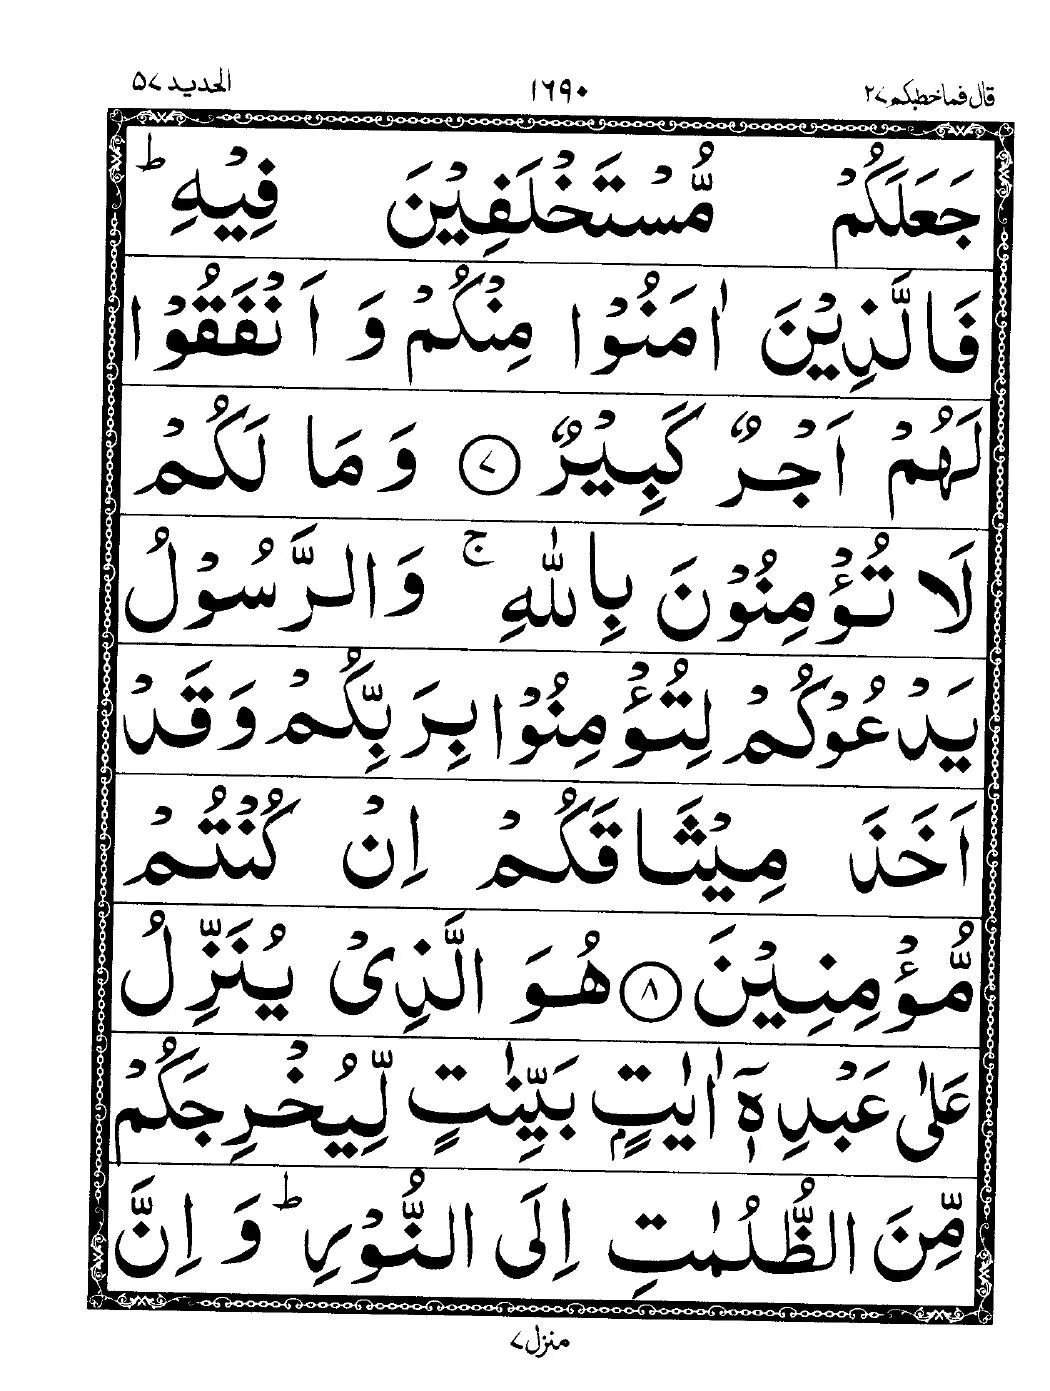 قال فما خطبکم ۲۷ ۱۶۹۰ الحدید ۵۷
جَعَلَكُمْ مُّسْتَخْلَفِيْنَ فِيْهِ ؕ
فَالَّذِيْنَ اٰمَنُوْا مِنْكُمْ وَ اَنْفَقُوْا
لَهُمْ اَجْرٌ كَبِيْرٌ ۷ وَ مَا لَكُمْ
لَا تُؤْمِنُوْنَ بِاللّٰهِ ۚ وَالرَّسُوْلُ
يَدْعُوْكُمْ لِتُؤْمِنُوْا بِرَبِّكُمْ وَقَدْ
اَخَذَ مِيْثَاقَكُمْ اِنْ كُنْتُمْ
مُّؤْمِنِيْنَ ۸ هُوَ الَّذِىْ يُنَزِّلُ
عَلٰى عَبْدِهٖۤ اٰيٰتٍۭ بَيِّنٰتٍ لِّيُخْرِجَكُمْ
مِّنَ الظُّلُمٰتِ اِلَى النُّوْرِ ؕ وَ اِنَّ
منزل ۷